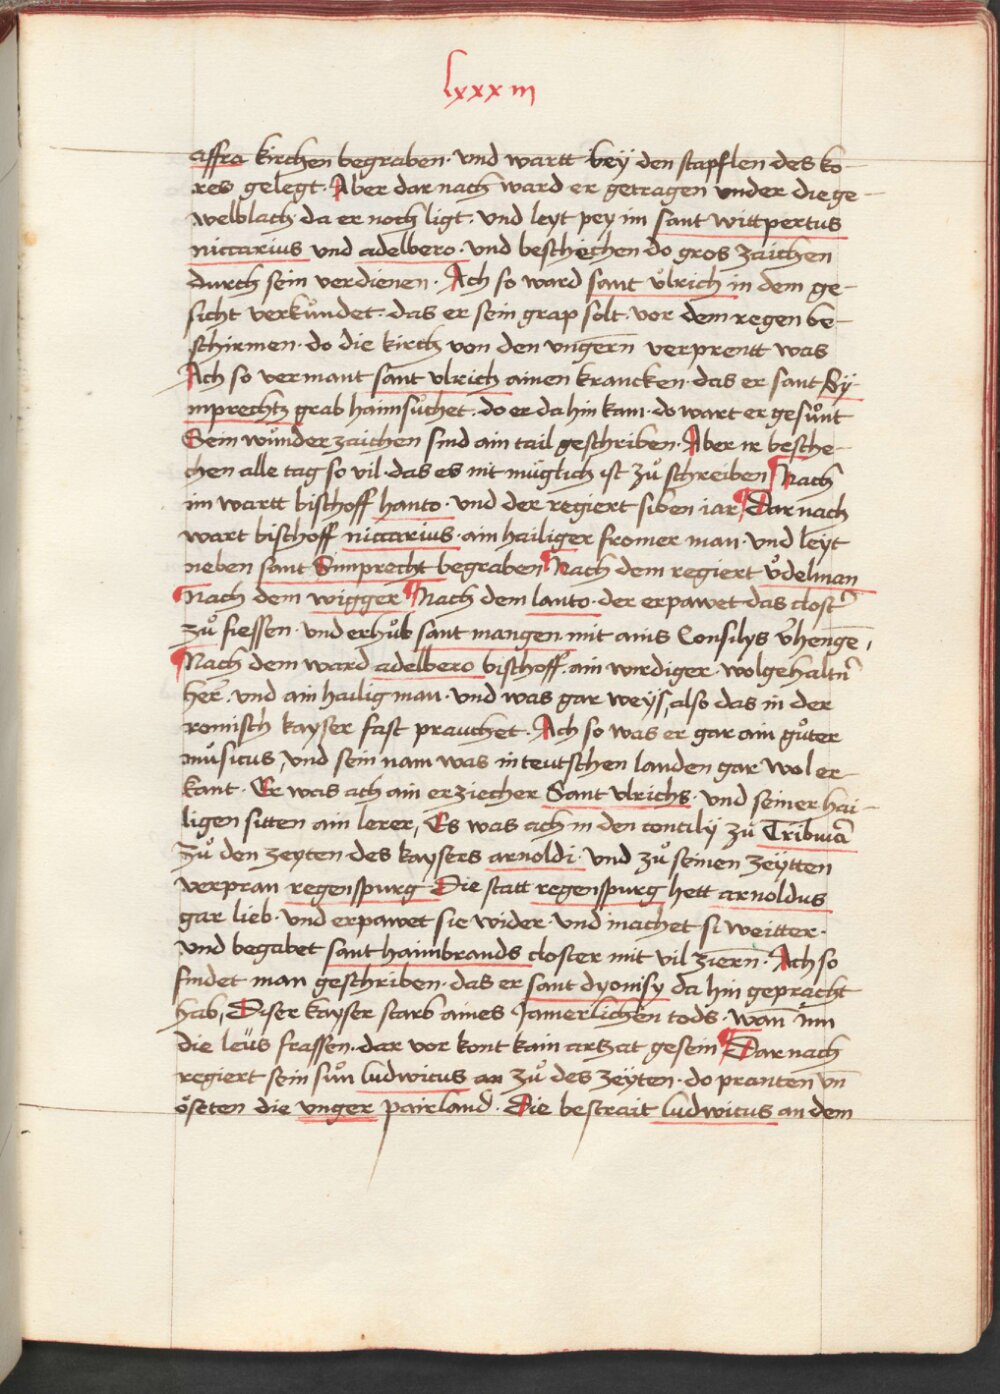 lxxxiii
affra kirchen begraben · vnd wartt · bey den stapflen · des ko-
res gelegt · Aber dar nach ward er getragen vnder die ge-
welblach · da er noch ligt · vnd leyt pey im sant wittpertus
niccarius vnd adelbero · vnd beschechen do gros zaichen
durch sein verdienen · Ach so ward sant vͦlrich in dem ge-
sicht verkündet · das er sein grap solt · vor dem regen be-
schirmen · do die kirch von den vngern̄ verprentt was
Ach so vermant sant vlrich ainen krancken · das er sant Sÿ-
mprechtz grab haimsuͦchet · do er da hin kam · do wart er gesuͦnt
Sein wuͦnderzaichen sind ain tail geschriben · Aber ir besche-
chen alle tag so vil · das es nit müglich ist zuͦ schreiben ¶ Nach
im wartt bischoff hanto · vnd der regiert siben iar ¶ Dar nach
wart bischoff niccarius · ain hailiger fromer man · vnd leyt
neben sant Simprecht begraben ¶ Nach dem regiert vͦdelman
¶ Nach dem wigger ¶ Nach dem lanto · der erpawet · das clost̄
zuͦ fiessen · vnd erhuͦb sant mangen · mit ains Consilys v̄hengē,
¶ Nach dem ward adelbero bischoff · ain wirdiger · wolgehaltn̄
her̄ · vnd ain hailig man · vnd was gar weys, also das in der
romisch kayser fast prauchet · Ach so was er gar ain guͦter
muͦsicus, vnd sein nam was in teutschen landen gar wol er-
kant · Er was ach ain erziecher Sant vlrichs · vnd seiner hai-
ligen sitten ain lerer, Es was ach in den concilÿ zuͦ Triburiā
zuͦ den zeyten · des kaysers arnoldi · vnd zuͦ seinen zeÿtten
verpran regenspurg · Die statt regenspurg hett arnoldus
gar lieb · vnd erpawet sie wider · vnd machet si weitter ·
vnd begabet sant haimbrands closter mit vil ziern̄ · Ach so
findet man geschriben · das er sant dyonisy da hin gepracht
hab, Diser kayser starb aines Jamerlichen tods · wan̄ inn
die leüs frassen · dar vor kont kain artzat gesein ¶ Dar nach
regiert sein suͦn ludwicus an zuͦ des zeÿten · do pranten vn̄
ösceten die vnger pairland · Die bestrait ludwicus an dem